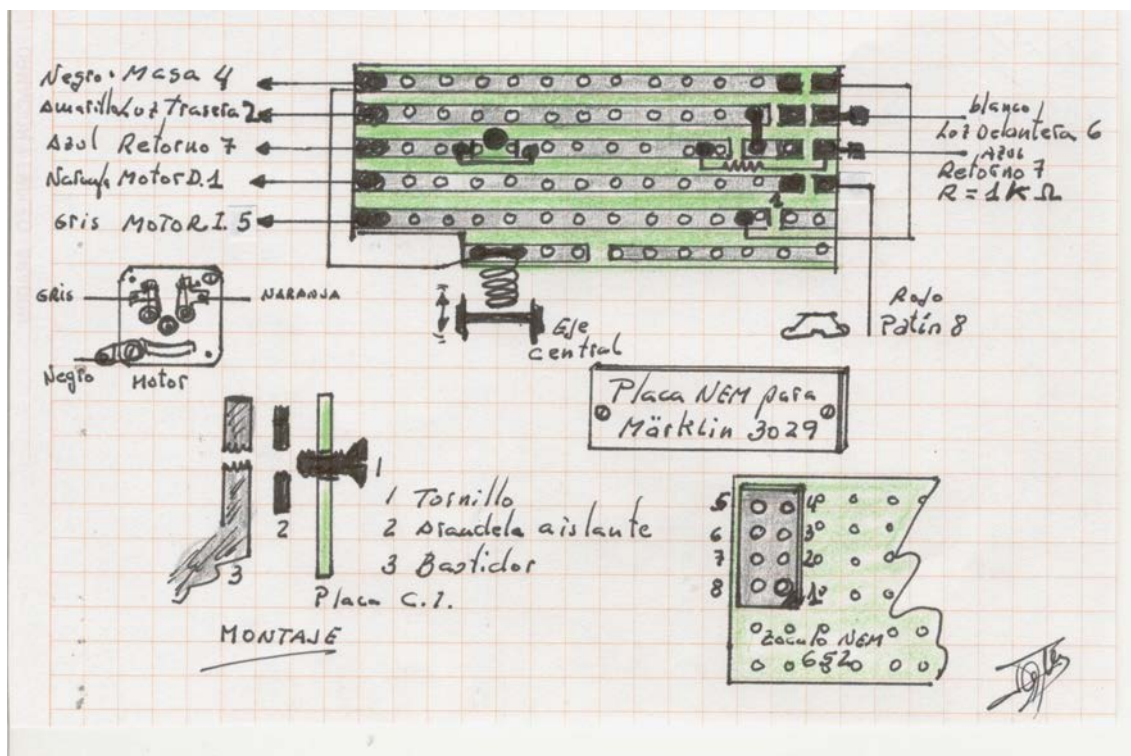 Negro. Masa 4
Amarillo Luz Trasera 2
Azul Retorno 7
Naranja Motor D. 1
Gris MOTOR I. 5
blanco
Luz Delantera 6
Azul
Retorno 7
R = 1K Ω
1
GRIS
NARANJA
Negro
Motor
Eje
central
Rojo
Patín 8
Placa NEM para
Märklin 3029
1
2
3
1 Tornillo
2 Arandela aislante
3 Bastidor
Placa C.I.
MONTAJE
5 4º
6 3º
7 2º
8 1º
Zócalo NEM
652